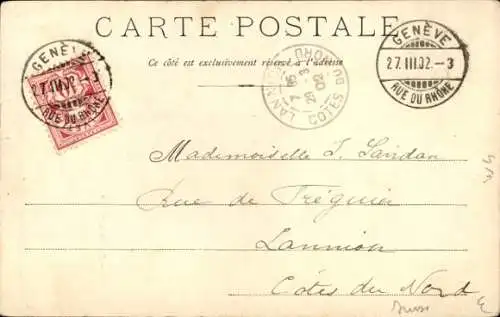 CARTE POSTALE
Ce côté est exclusivement réservé à l'adresse
GENÈVE
27.III.02.-3
RUE DU RHÔNE
GENÈVE
27.III.02.-3
RUE DU RHÔNE
LANNION
COTES DU NORD
Mademoiselle J. Savidan
Rue de Tréguier
Lannion
Côtes du Nord